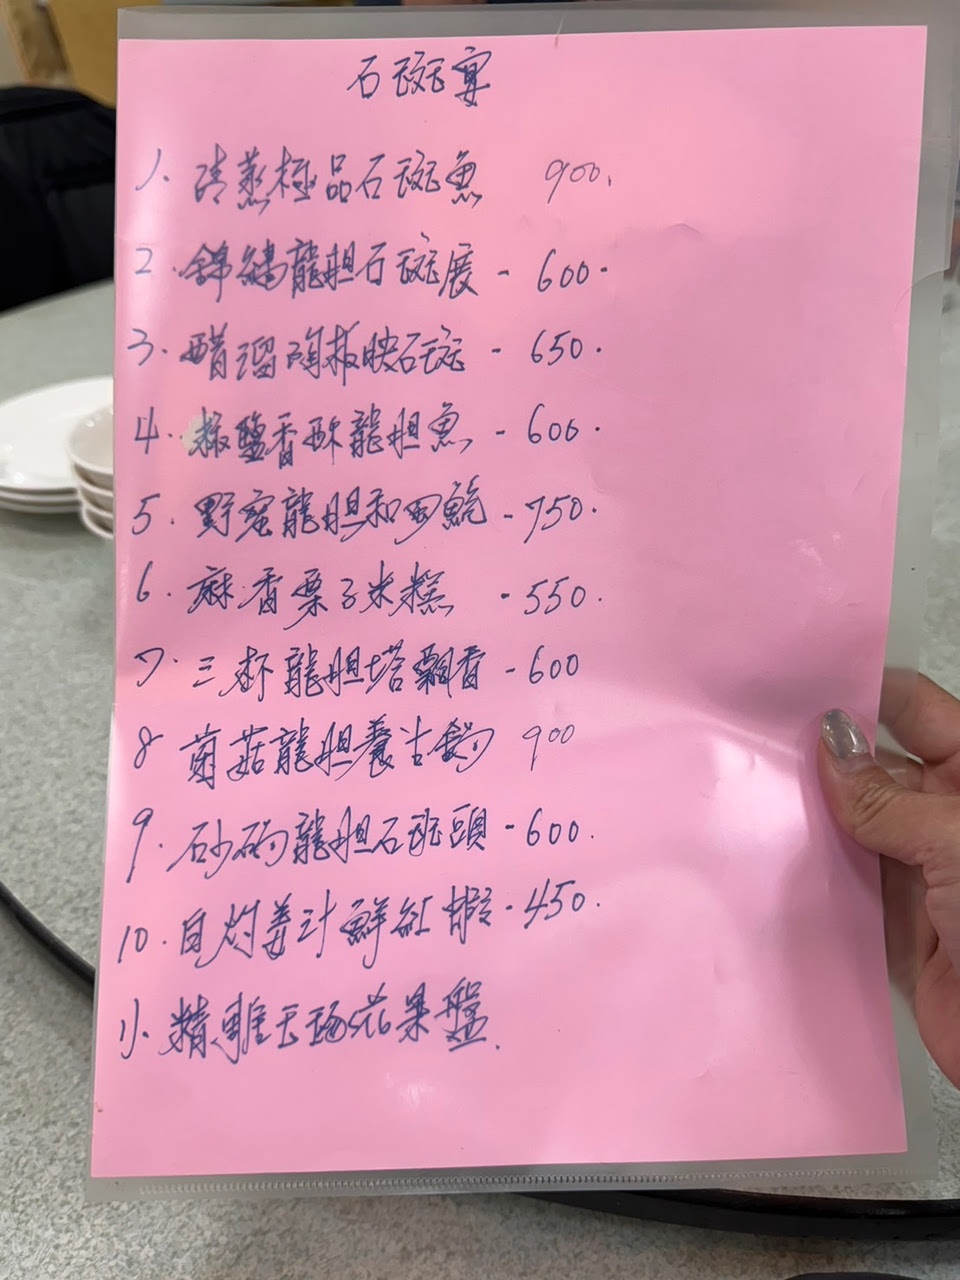 石斑宴
1. 清蒸極品石斑魚 900.
2. 錦繡龍胆石斑展 - 600.
3. 醋溜陶板映石斑 - 650.
4. 椒鹽香酥龍胆魚 - 600.
5. 野蜜龍胆和四鮑 - 750.
6. 麻香栗子米糕 - 550.
7. 三杯龍胆塔飄香 - 600
8 菊菇龍胆養古鍋 900
9. 砂鍋龍胆石斑頭 - 600.
10. 白灼姜汁鮮紅蝦 - 450.
11. 精雕玉琢花果盤.